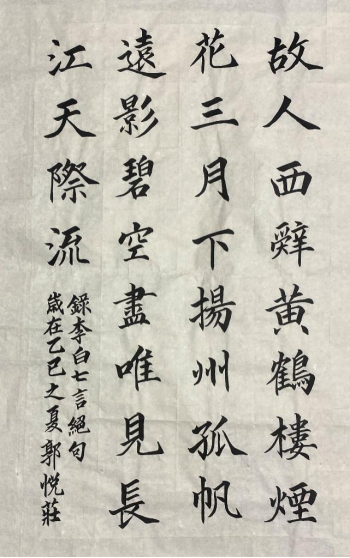 故人西辭黃鶴樓煙
花三月下揚州孤帆
遠影碧空盡唯見長
江天際流
錄李白七言絕句
歲在乙巳之夏郭悅莊